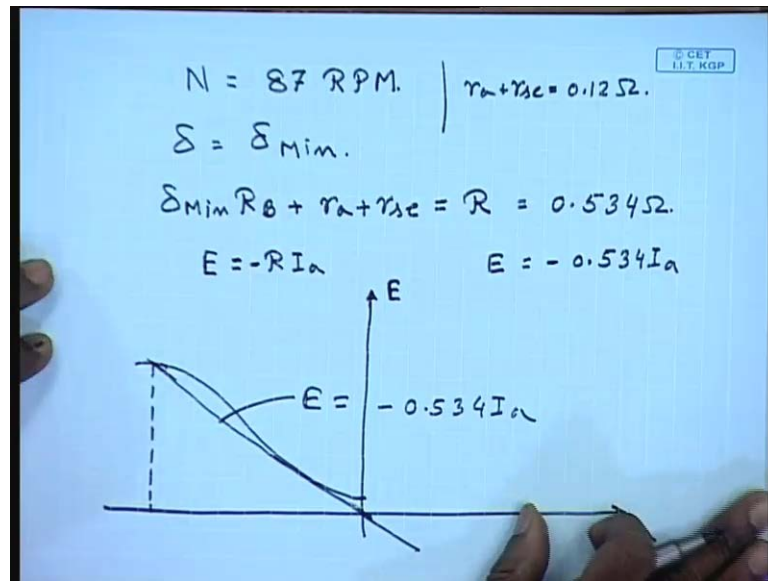 © CET
I.I.T. KGP
N = 87 RPM. | ra+rse = 0.12 Ω.
δ = δMin.
δMin RB + ra+rse = R = 0.534Ω.
E = -R Ia E = - 0.534Ia
E
E = - 0.534Ia